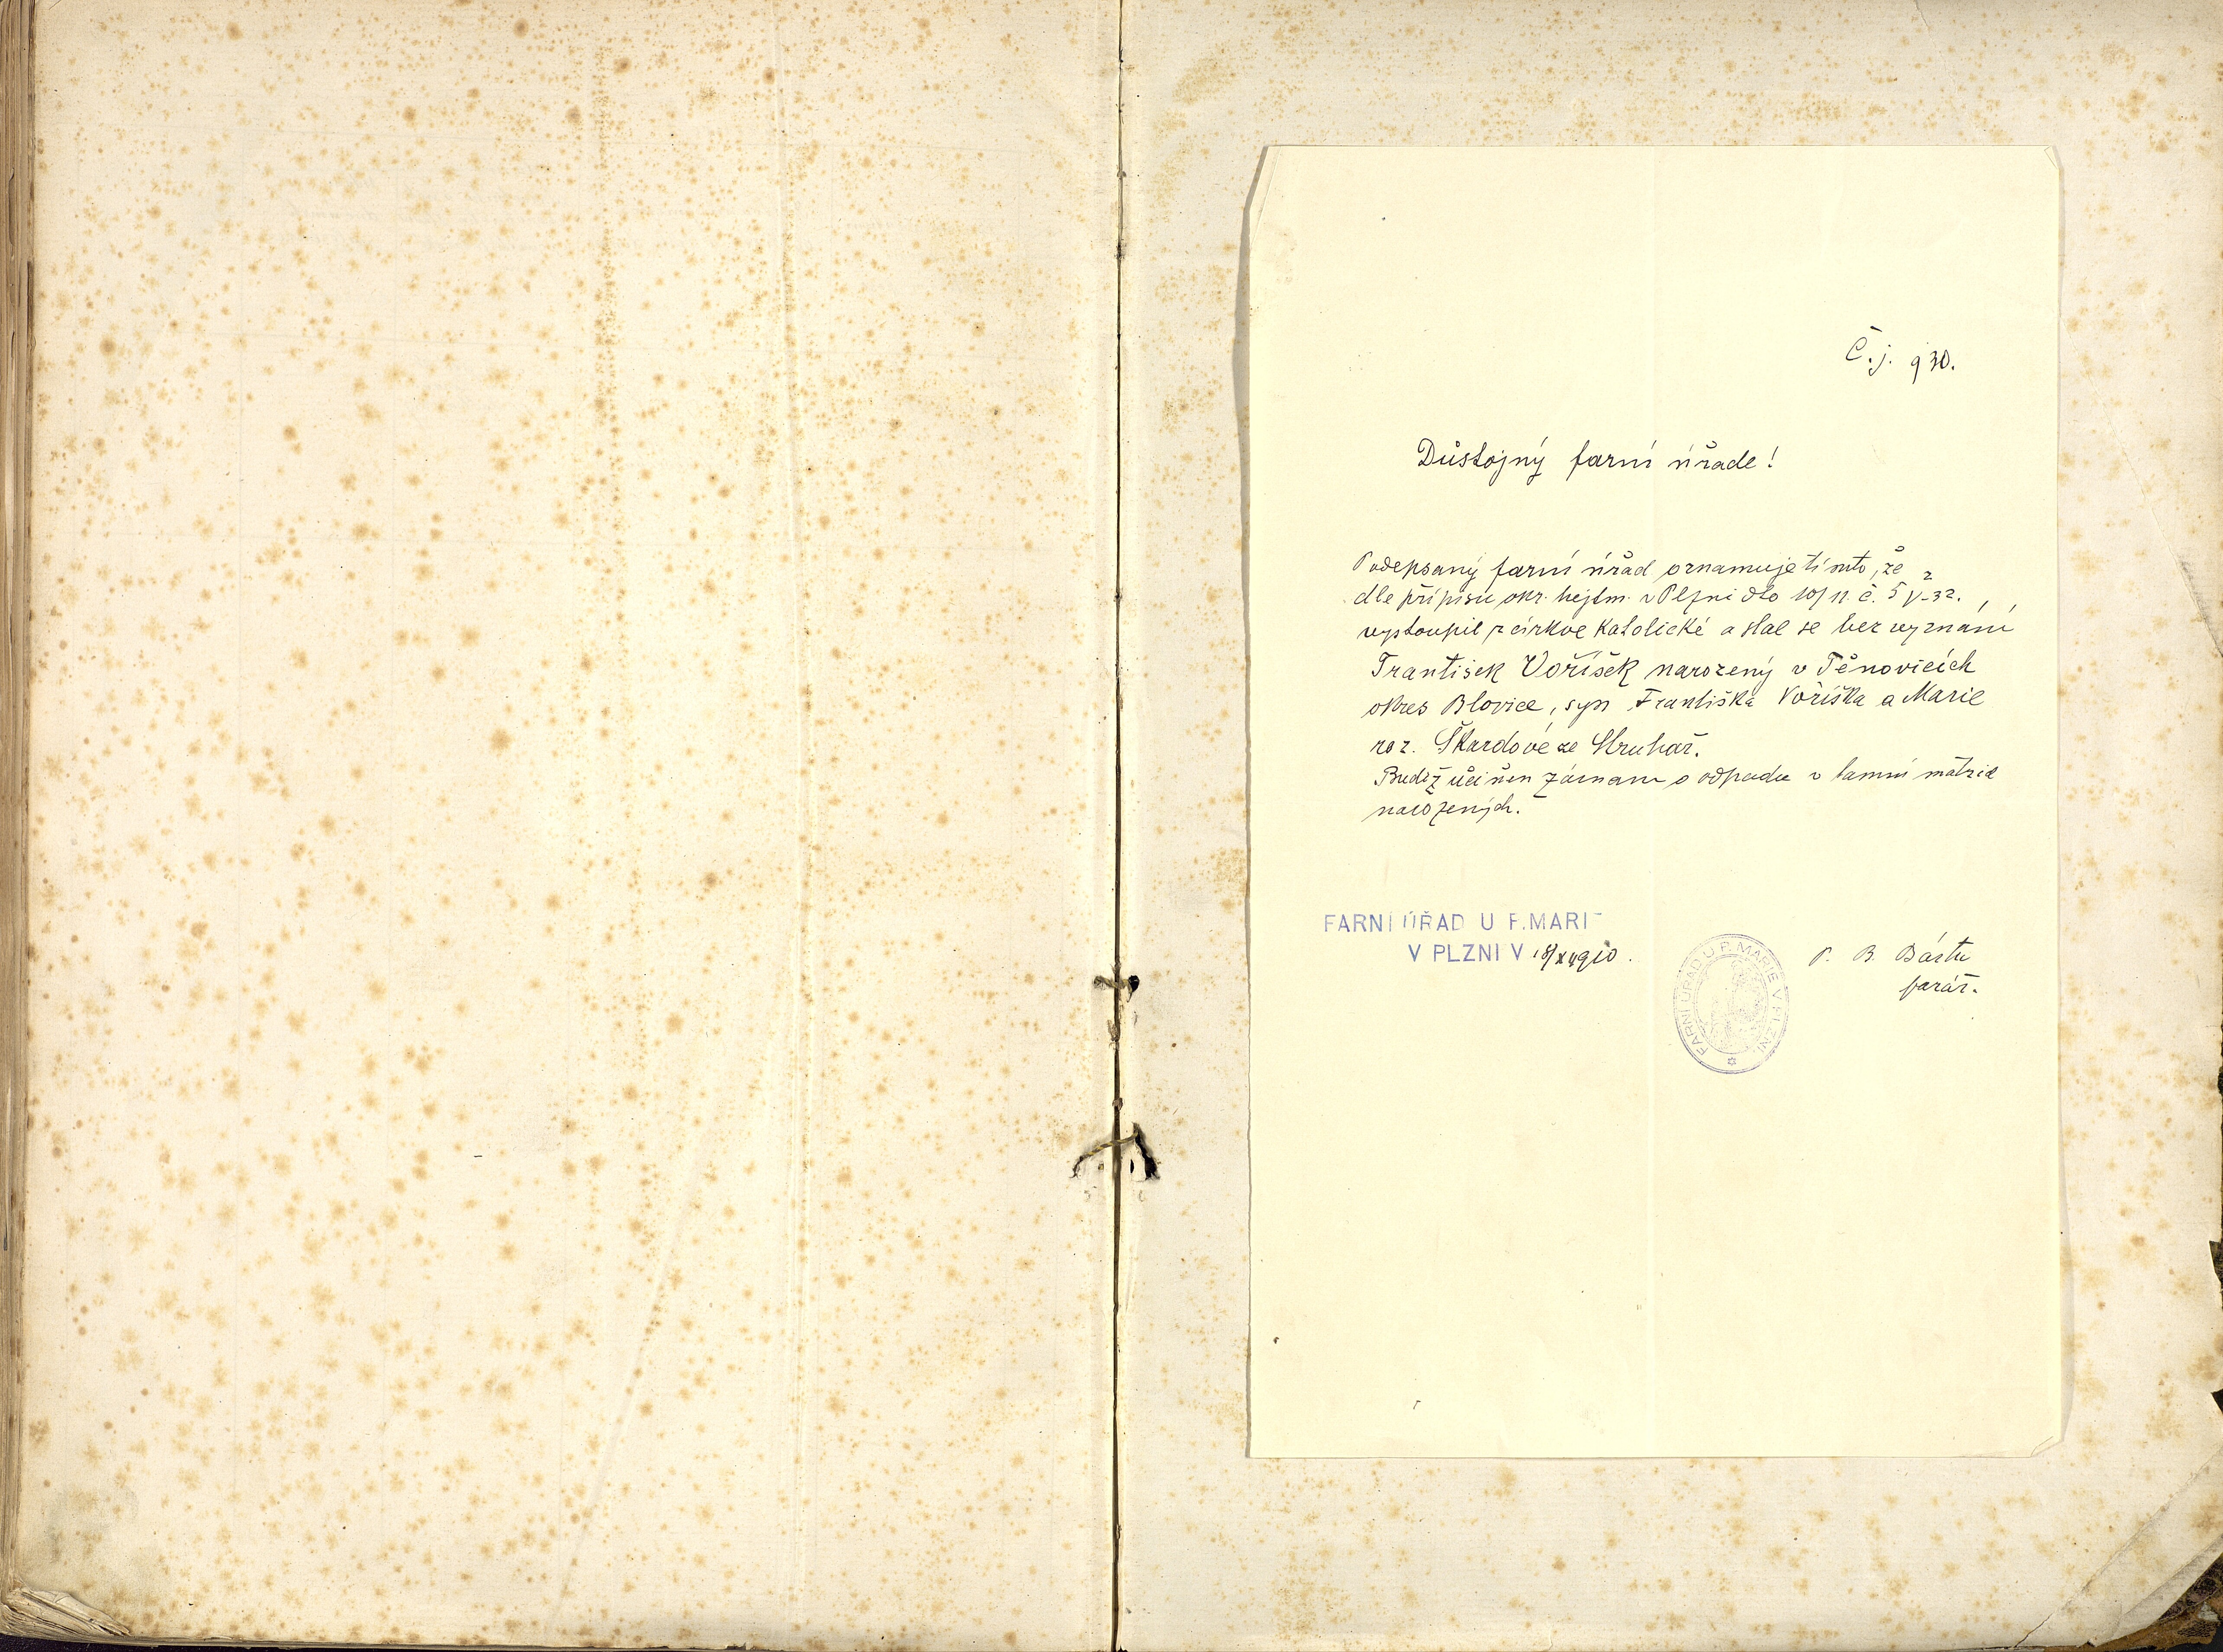 Č. j. 930.
Důstojný farní úřade!
Podepsaný farní úřad oznamuje tímto, že
dle přípisu okr. hejtm. v Plzni dto 10/11. č. 5 V-32.
vystoupil z církve katolické a stal se bez vyznání
František Voříšek narozený v Těnovicích
okres Blovice, syn Františka Voříška a Marie
roz. Škardové ze Struhař.
Budiž učiněn záznam o odpadu v tamní matrice
narozených.
FARNÍ ÚŘAD U P. MARIE
V PLZNI V 18/XI 1910.
P. B. Bárta
farář.
FARNÍ ÚŘAD U P. MARIE V PLZNI